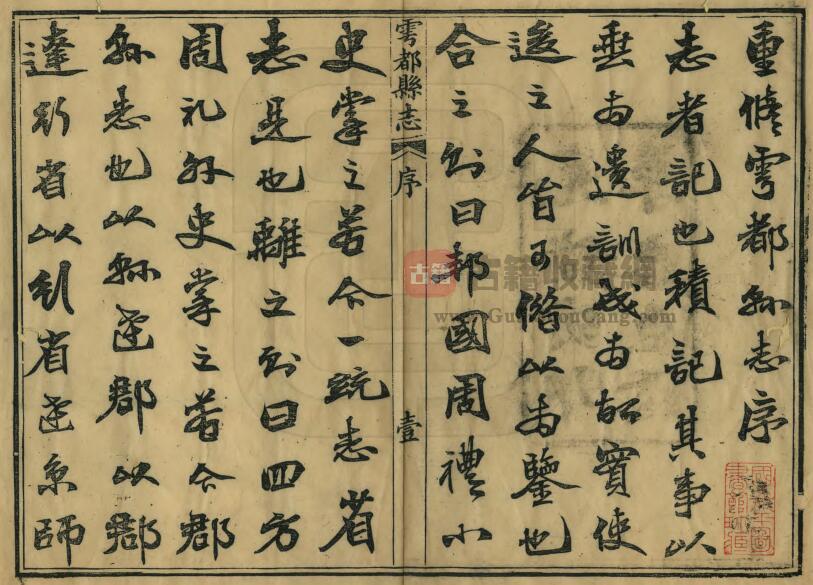 重脩雩都縣志序
志者記也積記其事以
垂為遺訓或為故實使
後之人皆可以為鑒也
合之則曰邦國周禮小
雩都縣志 序 壹
史掌之若今一統志省
志是也離之則曰四方
周礼外史掌之若今郡
縣志也以縣達郡以郡
達行省以行省達京師
古籍
古籍收藏網
www.GuJiShouCang.com